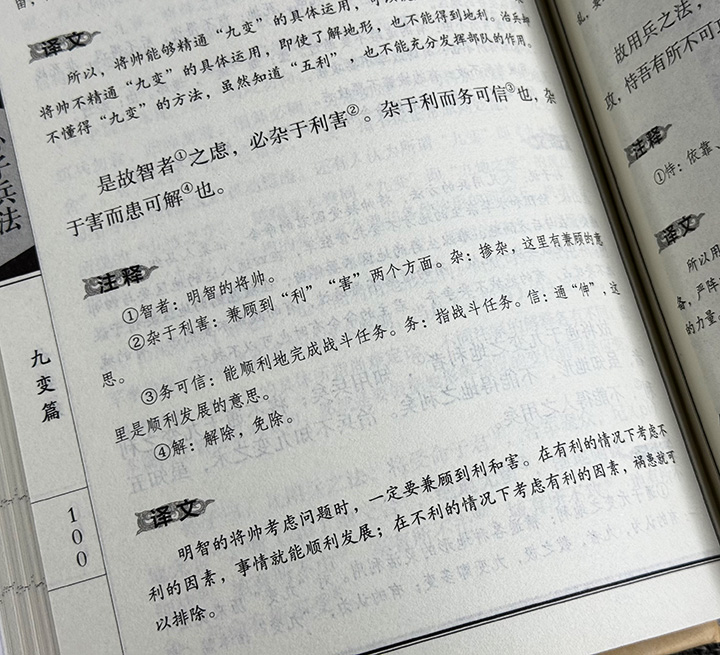 译文
所以，将帅能够精通“九变”的具体运用，
将帅不精通“九变”的具体运用，即使了解地形，也不能得到地利。治兵
不懂得“九变”的方法，虽然知道“五利”，也不能充分发挥部队的作用。
是故智者①之虑，必杂于利害②。杂于利而务可信③也，杂
于害而患可解④也。
注释
①智者：明智的将帅。
②杂于利害：兼顾到“利”“害”两个方面。杂：掺杂，这里有兼顾的意
思。
③务可信：能顺利地完成战斗任务。务：指战斗任务。信：通“伸”，这
里是顺利发展的意思。
④解：解除，免除。
译文
明智的将帅考虑问题时，一定要兼顾到利和害。在有利的情况下考虑不
利的因素，事情就能顺利发展；在不利的情况下考虑有利的因素，祸患就可
以排除。
子兵法
九变篇
100
故用兵之法，
攻，恃吾有所不可
注释
①恃：依靠、
译文
所以用
备，严阵
的力量。